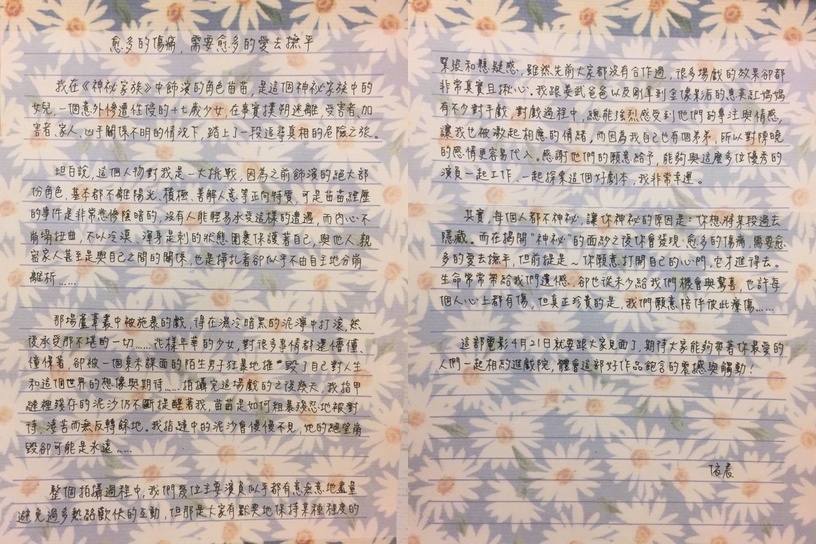 愈多的傷痛，需要愈多的愛去撫平
我在《神祕家族》中飾演的角色苗苗，是這個神祕家族中的
女兒，一個意外慘遭性侵的十七歲少女，在事實撲朔迷離，受害者、加
害者、家人、凶手關係不明的情況下，踏上了一段追尋真相的危險之旅。
坦白說，這個人物對我是一大挑戰，因為之前飾演的絕大部
份角色，基本都不離陽光、積極、善解人意等正向特質，可是苗苗經歷
的事件是非常悲慘陰暗的，沒有人能輕易承受這樣的遭遇，而內心不
崩塌扭曲，不以冷漠、渾身是刺的狀態圍裹保護著自己，與他人、親
密家人甚至是與自己之間的關係，也是掙扎著卻似乎不由自主地分崩
離析……
那場蘆葦叢中被施暴的戲，得在濕冷暗黑的泥濘中打滾，然
後承受那不堪的一切……花樣年華的少女，對很多事情都還懵懂、
憧憬著，卻被一個素未謀面的陌生男子狂暴地摧毀了自己對人生
和這個世界的想像與期待……拍攝完這場戲的之後幾天，我指甲
縫裡殘存的泥沙仍不斷提醒著我，苗苗是如何粗暴殘忍地被對
待，淒苦而無反轉餘地。我指縫中的泥沙會慢慢不見，她的絕望痛
毀卻可能是永遠……
整個拍攝過程中，我們幾位主要演員似乎都有意無意地盡量
避免過多熱絡歡快的互動，但那是大家有默契地保持某種程度的
緊張和懸疑感，雖然先前大家都沒有合作過，很多場戲的效果卻都
非常真實且揪心，我跟姜武爸爸以及剛拿到金像影后的惠英紅媽媽
有不少對手戲，對戲過程中，總能強烈感受到他們的專注與情感，
讓我也被激起相應的情緒。而因為我自己也有個弟弟，所以對陳曉
的感情更容易代入。感謝他們的願意給予，能夠與這麼多位優秀的
演員一起工作、一起探索這個好劇本，我非常幸運。
其實，每個人都不神祕，讓你神祕的原因是：你想將某段過去
隱藏。而在揭開“神祕”的面紗之後你會發現，愈多的傷痛，需要愈
多的愛去撫平，但前提是～你願意打開自己的心門，它才進得去。
生命常常帶給我們遺憾，卻也從未少給我們機會與驚喜，也許每
個人心上都有傷，但真正珍貴的是，我們願意陪伴彼此療傷……
這部電影4月21日就要跟大家見面了，期待大家能夠帶著你最愛的
人們一起相約進戲院，體會這部好作品飽含的震撼與觸動！
依晨